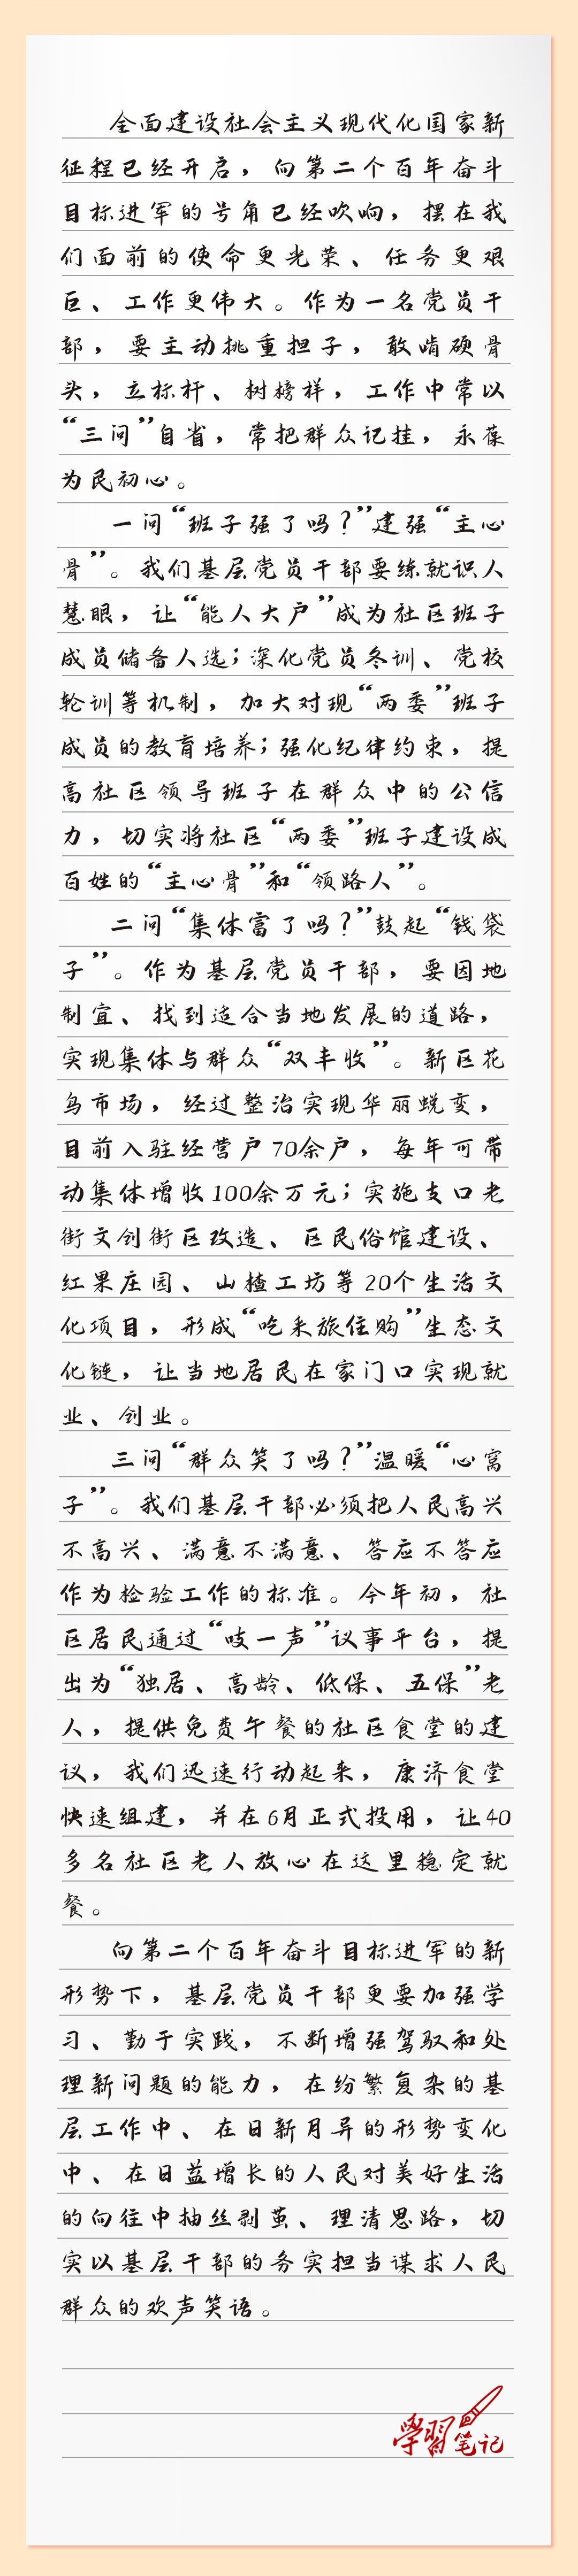 全面建设社会主义现代化国家新
征程已经开启，向第二个百年奋斗
目标进军的号角已经吹响，摆在我
们面前的使命更光荣、任务更艰
巨、工作更伟大。作为一名党员干
部，要主动挑重担子，敢啃硬骨
头，立标杆、树榜样，工作中常以
“三问”自省，常把群众记挂，永葆
为民初心。
一问“班子强了吗？”建强“主心
骨”。我们基层党员干部要练就识人
慧眼，让“能人大户”成为社区班子
成员储备人选；深化党员冬训、党校
轮训等机制，加大对现“两委”班子
成员的教育培养；强化纪律约束，提
高社区领导班子在群众中的公信
力，切实将社区“两委”班子建设成
百姓的“主心骨”和“领路人”。
二问“集体富了吗？”鼓起“钱袋
子”。作为基层党员干部，要因地
制宜、找到适合当地发展的道路，
实现集体与群众“双丰收”。新区花
鸟市场，经过整治实现华丽蜕变，
目前入驻经营户70余户，每年可带
动集体增收100余万元；实施支口老
街文创街区改造、区民俗馆建设、
红果庄园、山楂工坊等20个生活文
化项目，形成“吃来旅住购”生态文
化链，让当地居民在家门口实现就
业、创业。
三问“群众笑了吗？”温暖“心窝
子”。我们基层干部必须把人民高兴
不高兴、满意不满意、答应不答应
作为检验工作的标准。今年初，社
区居民通过“吱一声”议事平台，提
出为“独居、高龄、低保、五保”老
人，提供免费午餐的社区食堂的建
议，我们迅速行动起来，康济食堂
快速组建，并在6月正式投用，让40
多名社区老人放心在这里稳定就
餐。
向第二个百年奋斗目标进军的新
形势下，基层党员干部更要加强学
习、勤于实践，不断增强驾驭和处
理新问题的能力，在纷繁复杂的基
层工作中、在日新月异的形势变化
中、在日益增长的人民对美好生活
的向往中抽丝剥茧、理清思路，切
实以基层干部的务实担当谋求人民
群众的欢声笑语。
學習笔记